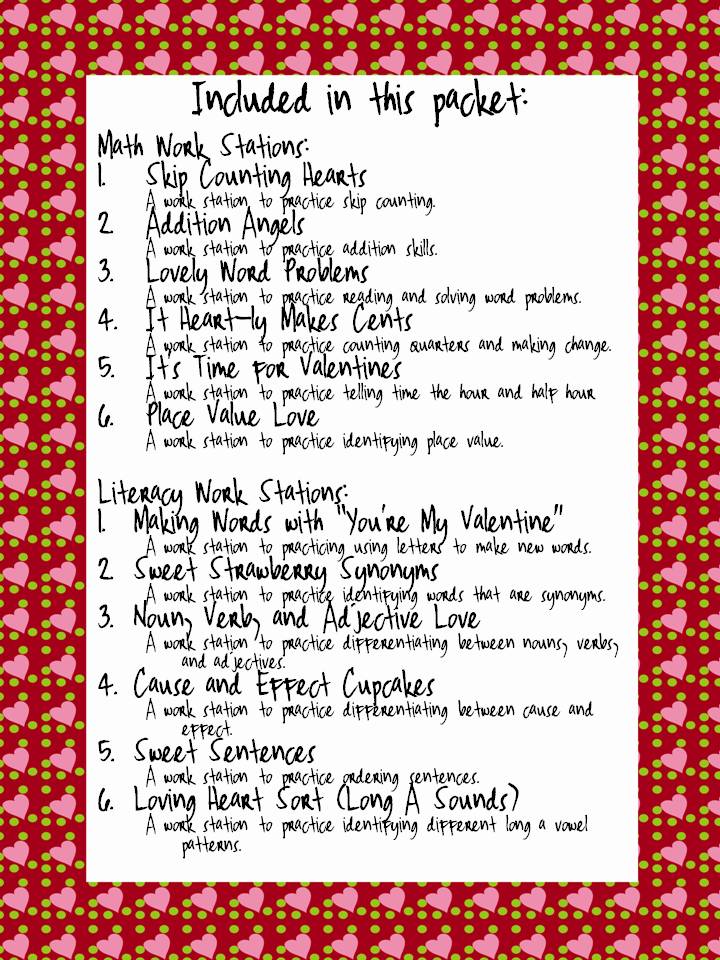 Included in this packet:
Math Work Stations:
1. Skip Counting Hearts
A work station to practice skip counting.
2. Addition Angels
A work station to practice addition skills.
3. Lovely Word Problems
A work station to practice reading and solving word problems.
4. It Heart-ly Makes Cents
A work station to practice counting quarters and making change.
5. It's Time for Valentines
A work station to practice telling time the hour and half hour
6. Place Value Love
A work station to practice identifying place value.
Literacy Work Stations:
1. Making Words with "You're My Valentine"
A work station to practicing using letters to make new words.
2. Sweet Strawberry Synonyms
A work station to practice identifying words that are synonyms.
3. Noun, Verb, and Adjective Love
A work station to practice differentiating between nouns, verbs,
and adjectives.
4. Cause and Effect Cupcakes
A work station to practice differentiating between cause and
effect.
5. Sweet Sentences
A work station to practice ordering sentences.
6. Loving Heart Sort (Long A Sounds)
A work station to practice identifying different long a vowel
patterns.